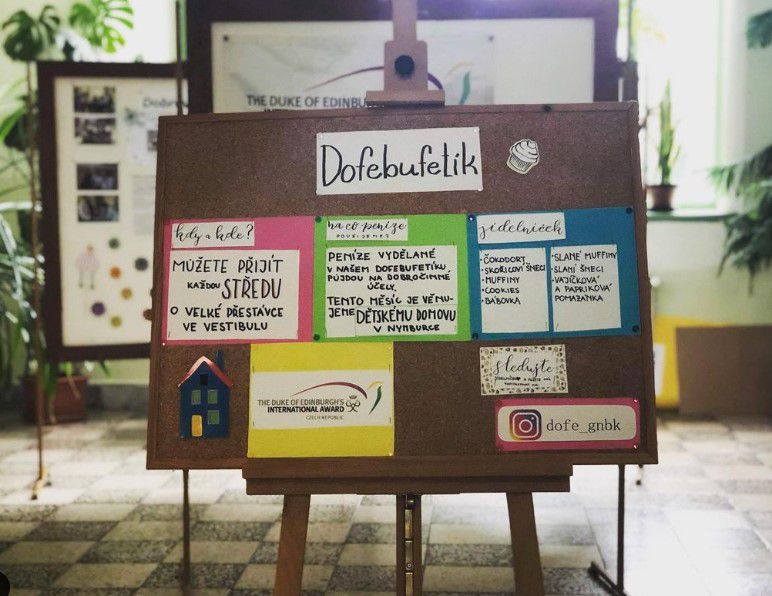 THE DUKE OF EDINBURGH
Dofebufetík
kdy a kde?
MŮŽETE PŘIJÍT
KAŽDOU STŘEDU
O VELKÉ PŘESTÁVCE
VE VESTIBULU
na co peníze
POUŽIJEME?
PENÍZE VYDĚLANÉ
V NAŠEM DOFEBUFETÍKU
PŮJDOU NA DOBROČINNÉ
ÚČELY.
TENTO MĚSÍC JE VĚNU-
JEME DĚTSKÉMU DOMOVU
V NYMBURCE
jídelníček
• ČOKODORT
• SKOŘICOVÍ ŠNECI
• MUFFINY
• COOKIES
• BÁBOVKA
• SLANÉ MUFFINY
• SLANÍ ŠNECI
• VAJÍČKOVÁ
A PAPRIKOVÁ
POMAZÁNKA
THE DUKE OF EDINBURGH'S
INTERNATIONAL AWARD
CZECH REPUBLIC
sledujte
dofe_gnbk